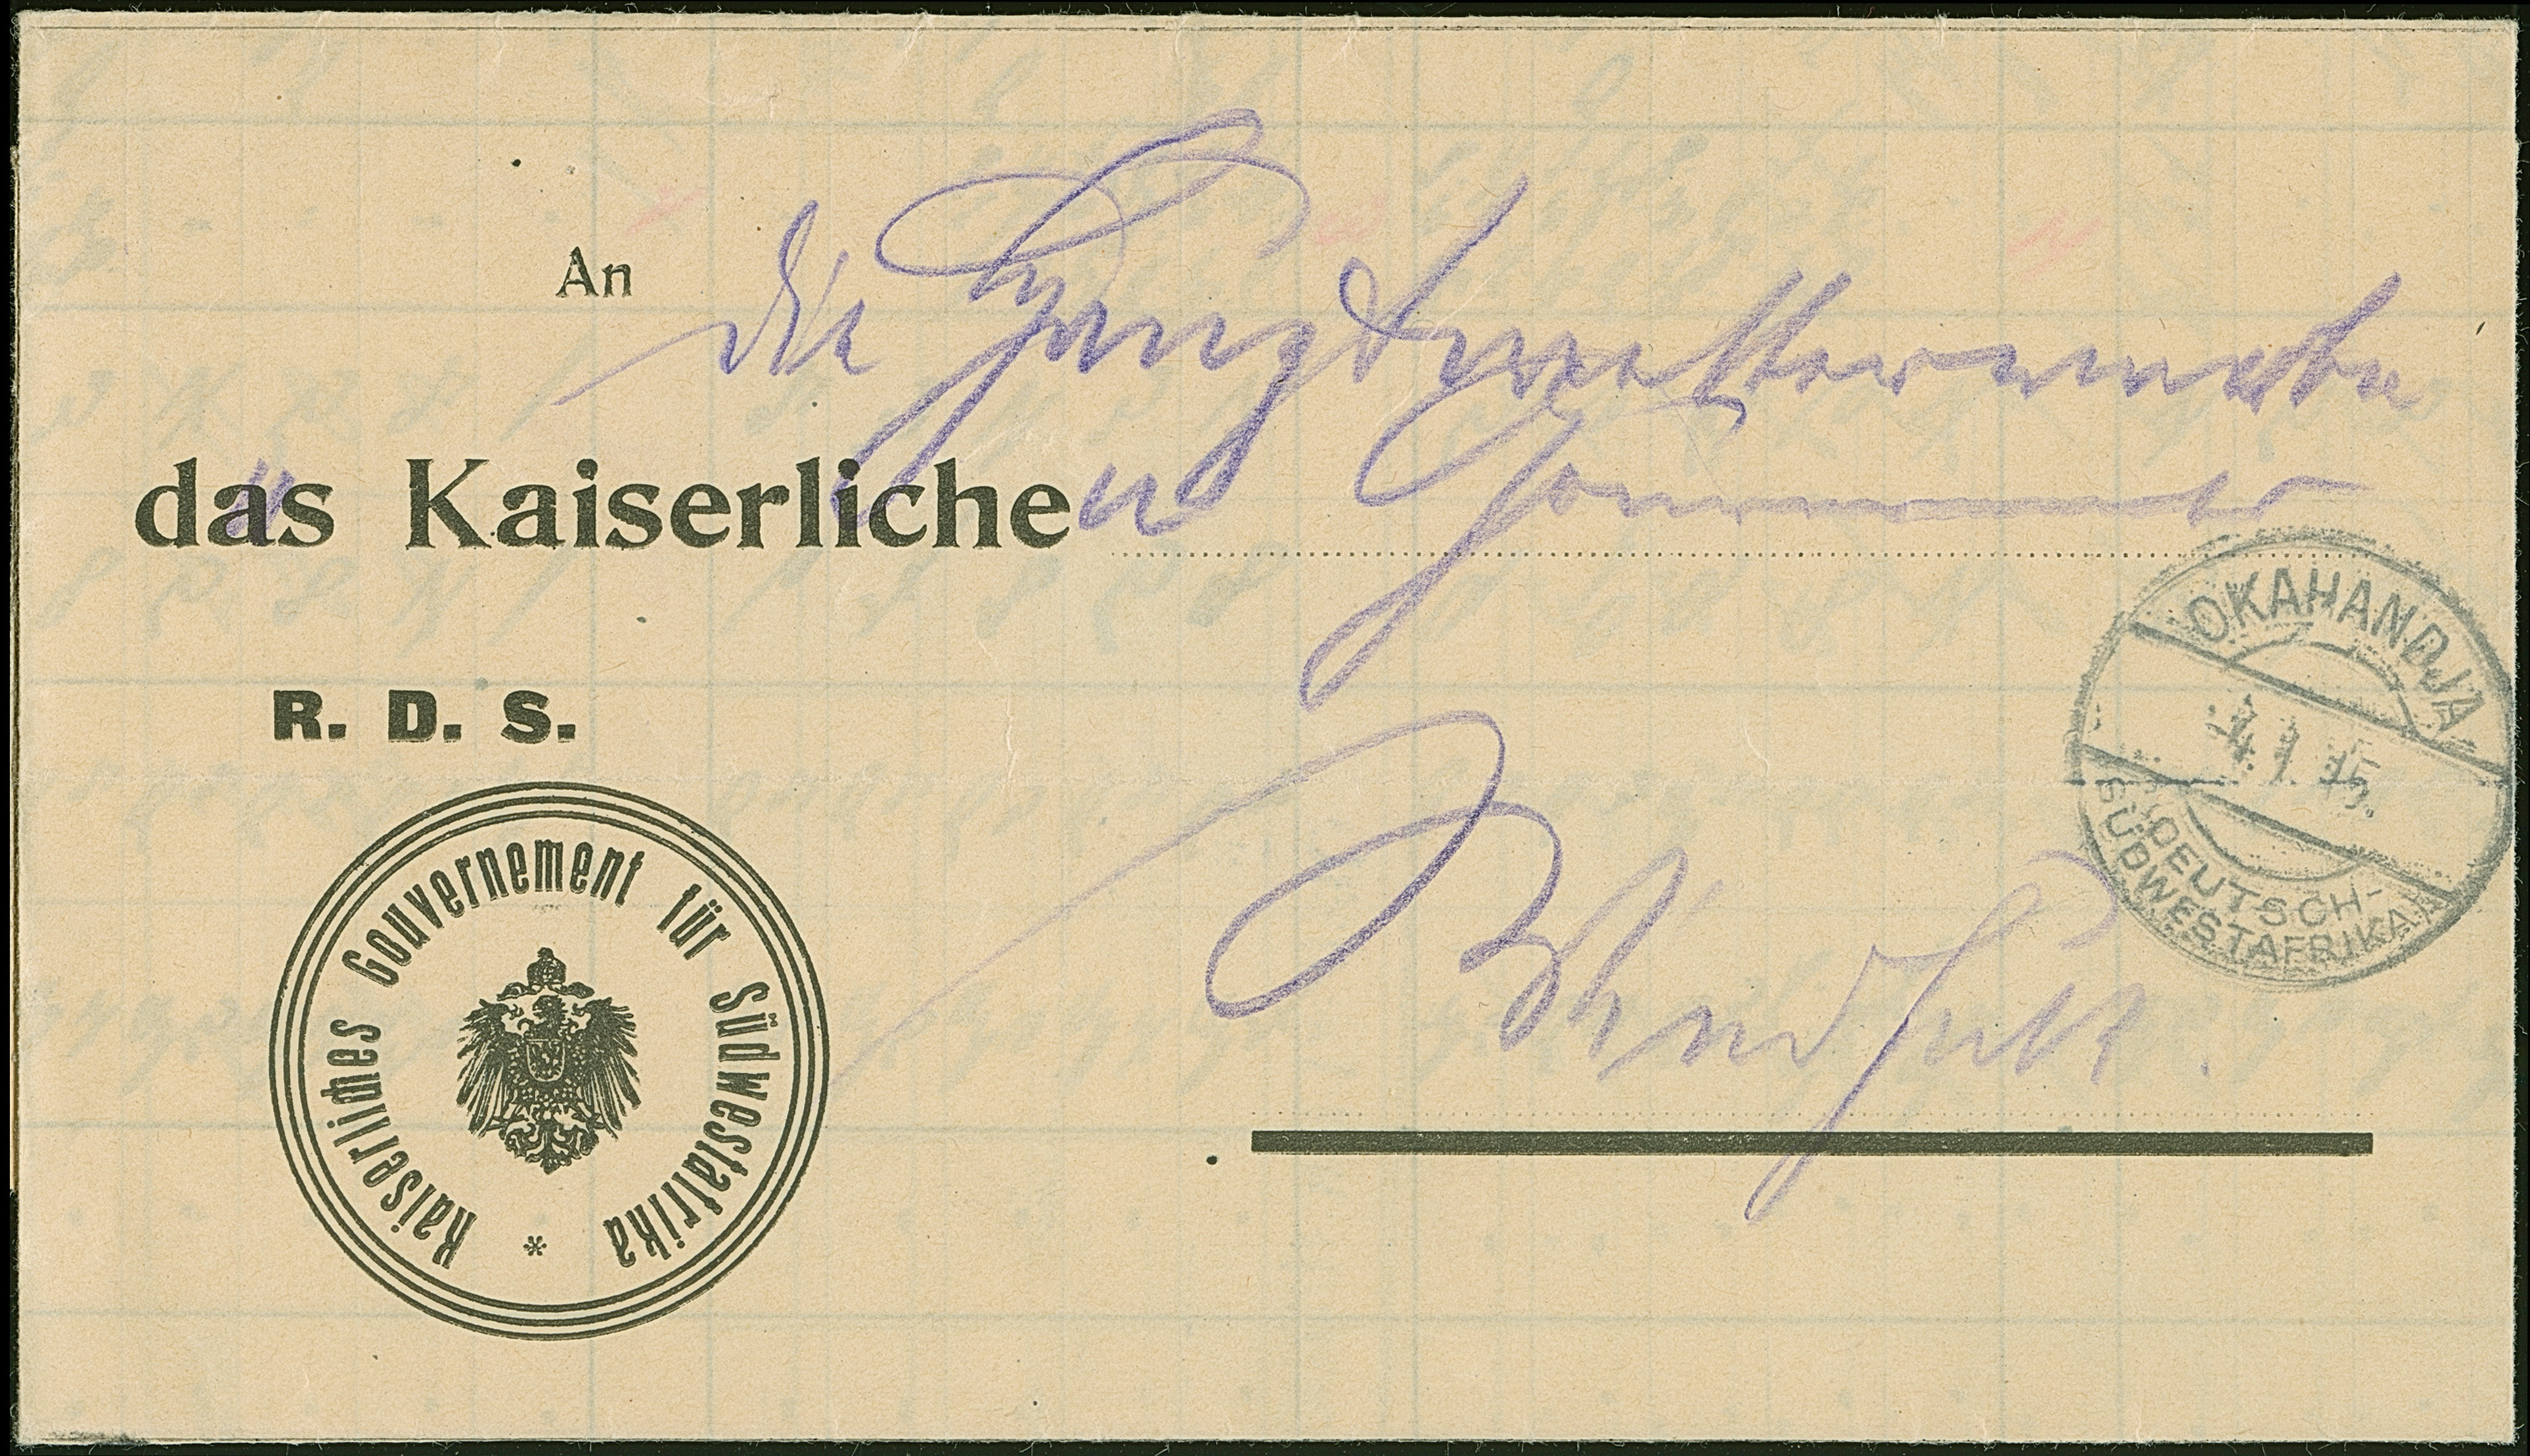 An die
das Kaiserlichen Gouvernements
R. D. S.
Windhuk.
Kaiserliches Gouvernement für Südwestafrika *
OKAHANDJA
4.1.15.
DEUTSCH-
SÜDWESTAFRIKA